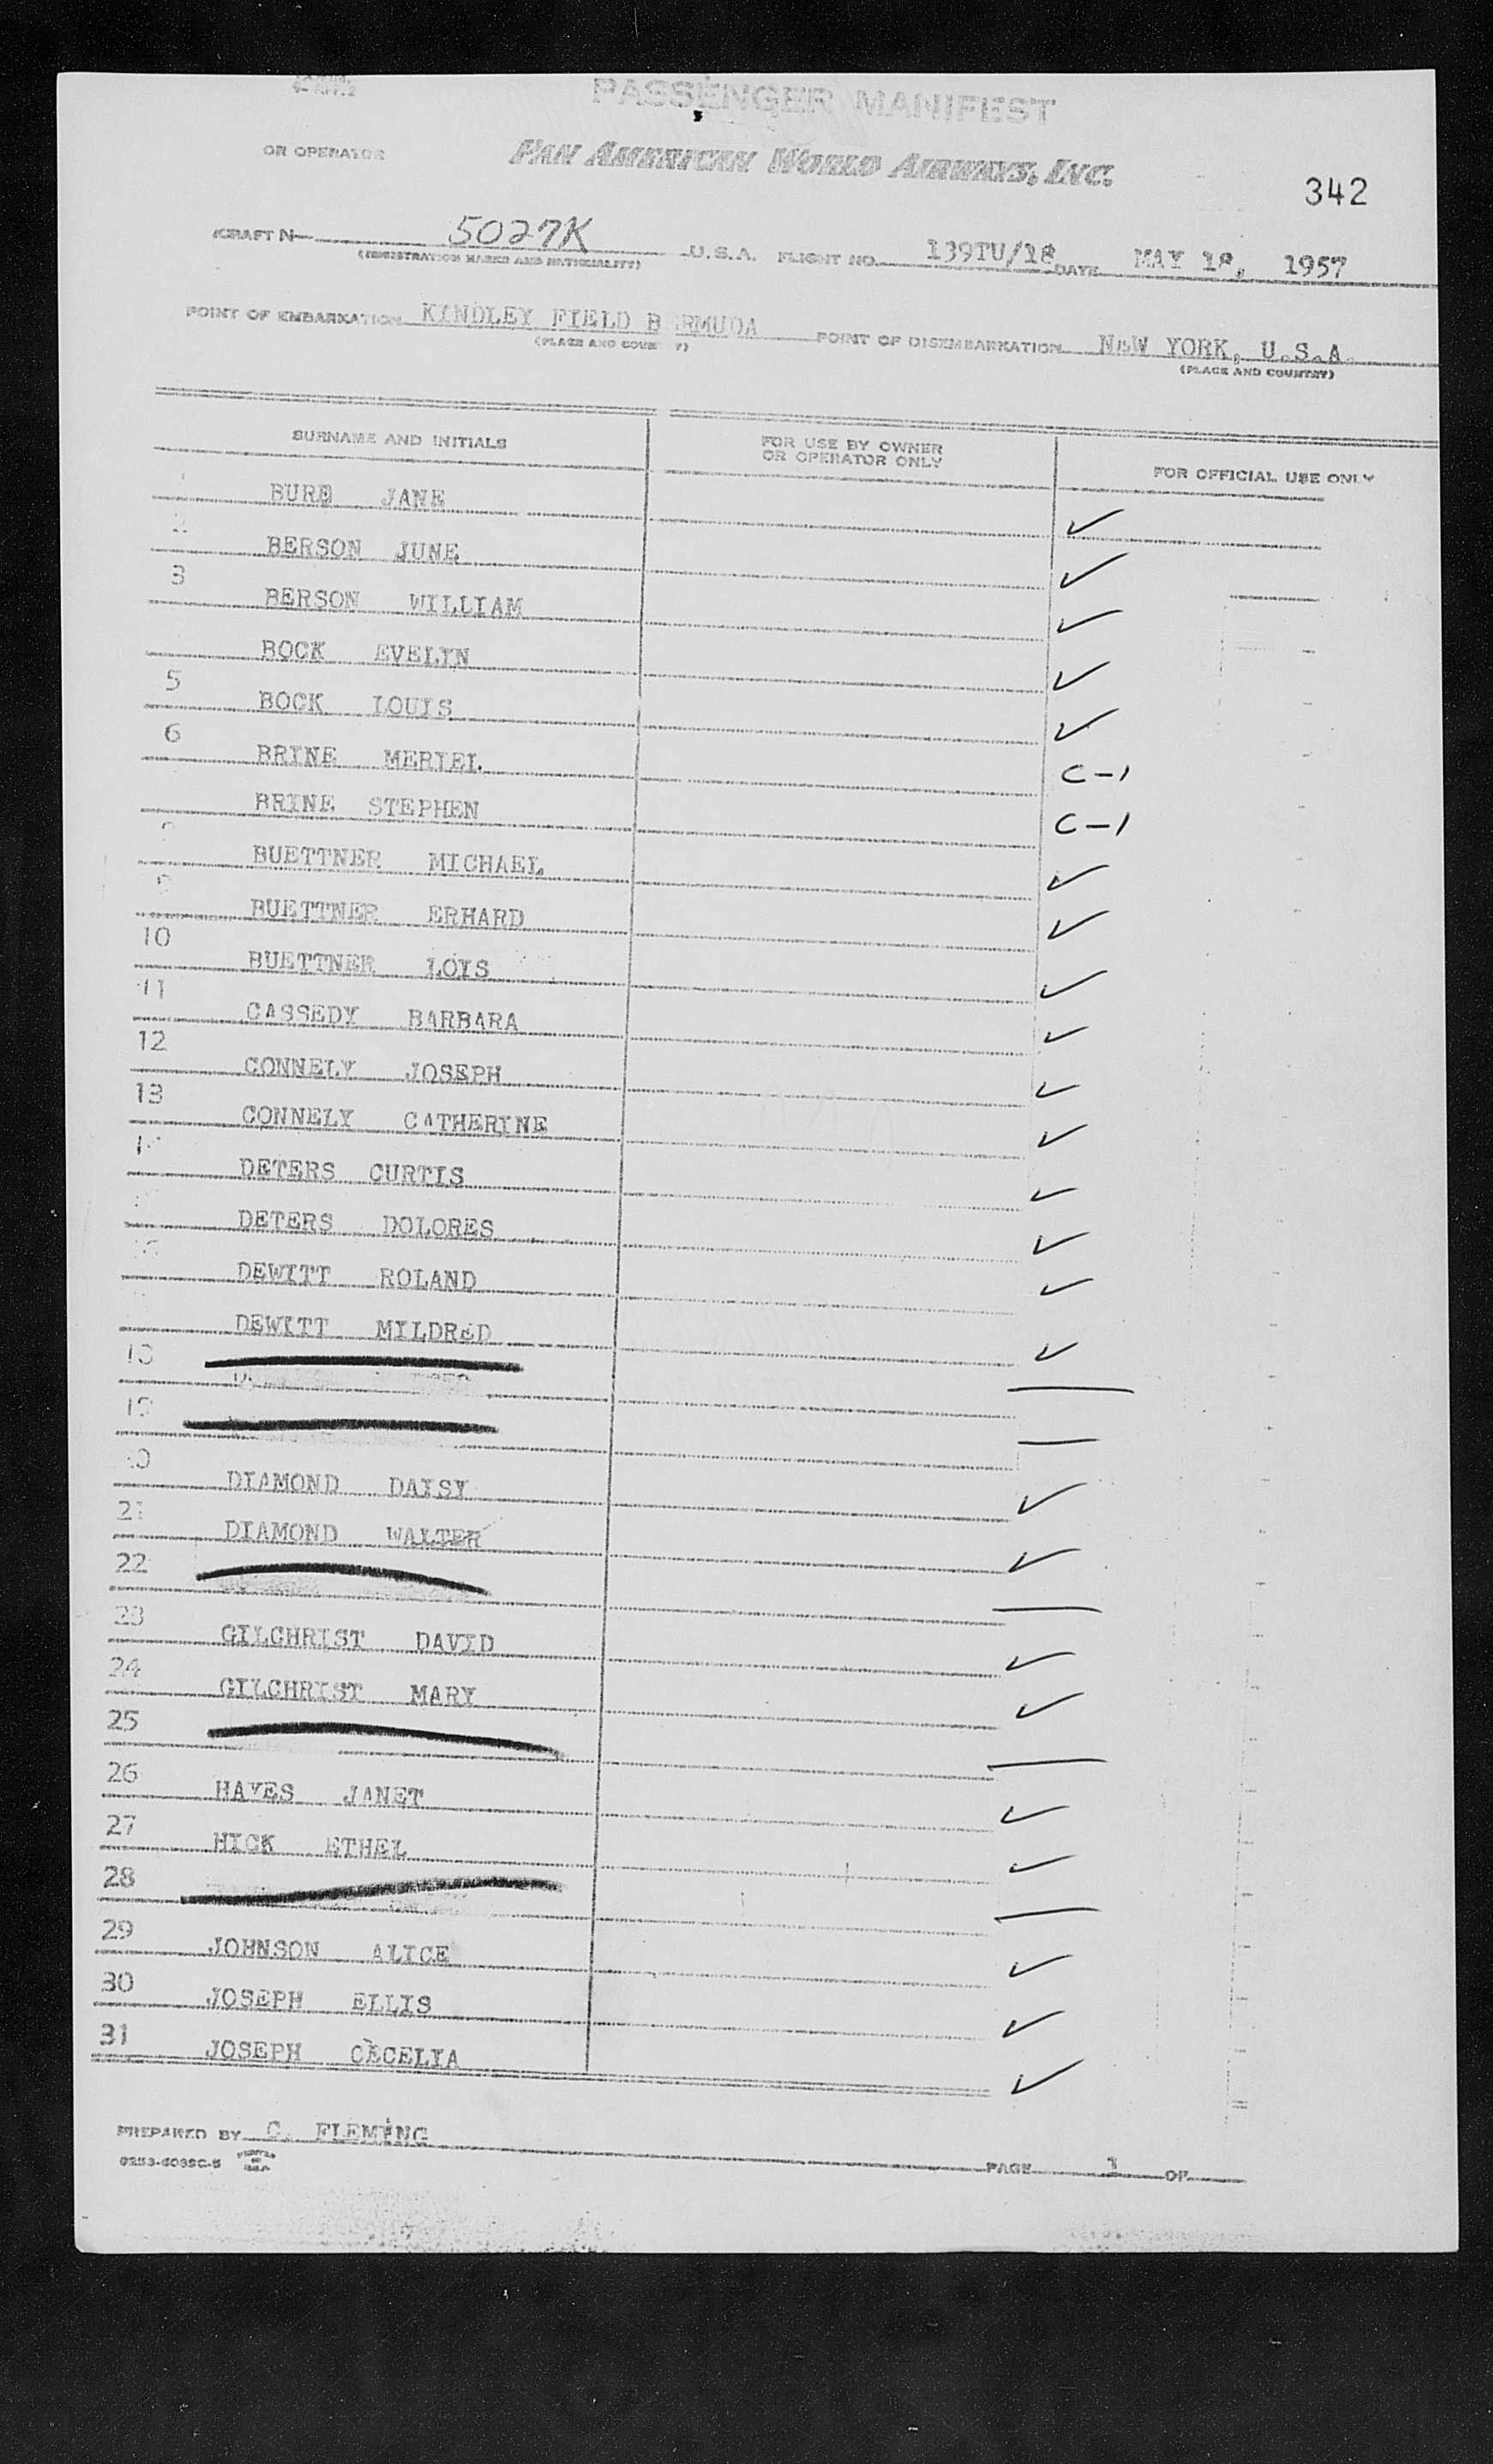 PASSENGER MANIFEST
OR OPERATOR PAN AMERICAN WORLD AIRWAYS, INC.
342
CRAFT N— 5027K U.S.A. FLIGHT NO. 139TU/18 DATE MAY 18, 1957
(REGISTRATION MARKS AND NATIONALITY)
POINT OF EMBARKATION KINDLEY FIELD B RMUDA POINT OF DISEMBARKATION NEW YORK, U.S.A.
(PLACE AND COUN Y) (PLACE AND COUNTRY)
SURNAME AND INITIALS FOR USE BY OWNER OR OPERATOR ONLY FOR OFFICIAL USE ONLY
JANE ✓
BERSON JUNE ✓
3 BERSON WILLIAM ✓
BOCK EVELIN ✓
5 BOCK LOUIS ✓
6 BRINE MERIEL C-1
BRINE STEPHEN C-1
BUETTNER MICHAEL ✓
9 BUETTNER ERHARD ✓
10 BUETTNER LOIS ✓
11 CASSEDY BARBARA ✓
12 CONNELY JOSEPH ✓
13 CONNELY CATHERINE ✓
DETERS CURTIS ✓
DETERS DOLORES ✓
DEWITT ROLAND ✓
DEWITT MILDRED ✓
18 —
19 —
0 DIAMOND DAISY ✓
21 DIAMOND WALTER ✓
22 —
23 GILCHRIST DAVID ✓
24 GILCHRIST MARY ✓
25 —
26 HAYES JANET ✓
27 HICK ETHEL ✓
28 —
29 JOHNSON ALICE ✓
30 JOSEPH ELLIS ✓
31 JOSEPH CECELIA ✓
PREPARED BY C. FLEMING
PAGE 1 OF